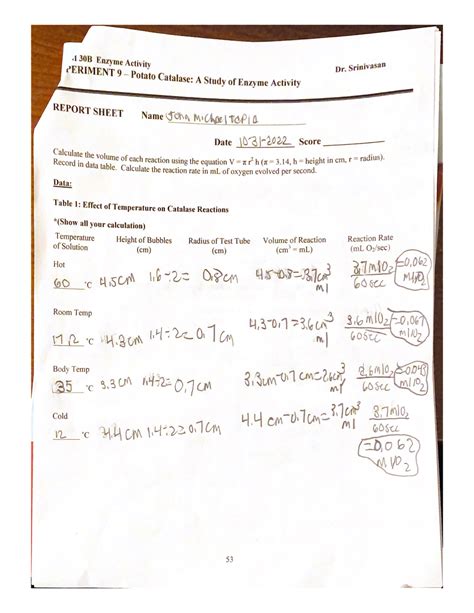 .1 30B Enzyme Activity
PERIMENT 9 – Potato Catalase: A Study of Enzyme Activity
Dr. Srinivasan
REPORT SHEET Name John Michael Tapia
Date 10-31-2022 Score
Calculate the volume of each reaction using the equation V = π r² h (π = 3.14, h = height in cm, r = radius).
Record in data table. Calculate the reaction rate in mL of oxygen evolved per second.
Data:
Table 1: Effect of Temperature on Catalase Reactions
*(Show all your calculation)
Temperature of Solution Height of Bubbles (cm) Radius of Test Tube (cm) Volume of Reaction (cm³ = mL) Reaction Rate (mL O₂/sec)
Hot
60 °C 4.5cm 1.6÷2= 0.8cm 4.5-0.8=3.7cm³ ml 3.7mlO₂ 60sec =0.062 mlO₂
Room Temp
°C 4.3cm 1.4÷2=0.7cm 4.3-0.7=3.6cm³ ml 3.6mlO₂ 60sec mlO₂
Body Temp
35 °C 3.3cm 1.4÷2=0.7cm 3.3cm-0.7cm= cm³ ml 60sec mlO₂
Cold
12 °C 4.4cm 1.4÷2=0.7cm 4.4cm-0.7cm=3.7cm³ ml 3.7mlO₂ 60sec
=0.062
mlO₂
53